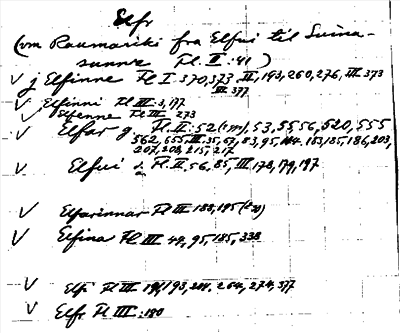 Elfr
(vm Raumariki fra Elfui til Suina-
sunnz Fl. II: 41)
✓ j Elfinne Fl I 370,373. II, 193,260,276, III. 373
III. 377
✓ Elfinni Fl III: 3, 177
✓ Elfenne Fl III 273
✓ Elfar g. Fl. II: 52 53, 55 56, 520, 555
562, 655. III. 35, 83, 95, 183, 185, 186, 203,
207, 208, 215, 217
✓ Elfui Fl. II, 56, 85, III 178, 179, 197
✓ Elfarinnar Fl III 188, 195
✓ Elfina Fl III 49, 95, 185, 338
✓ Elfi Fl III 193, 264, 274, 377
✓ Elfr Fl III: 180